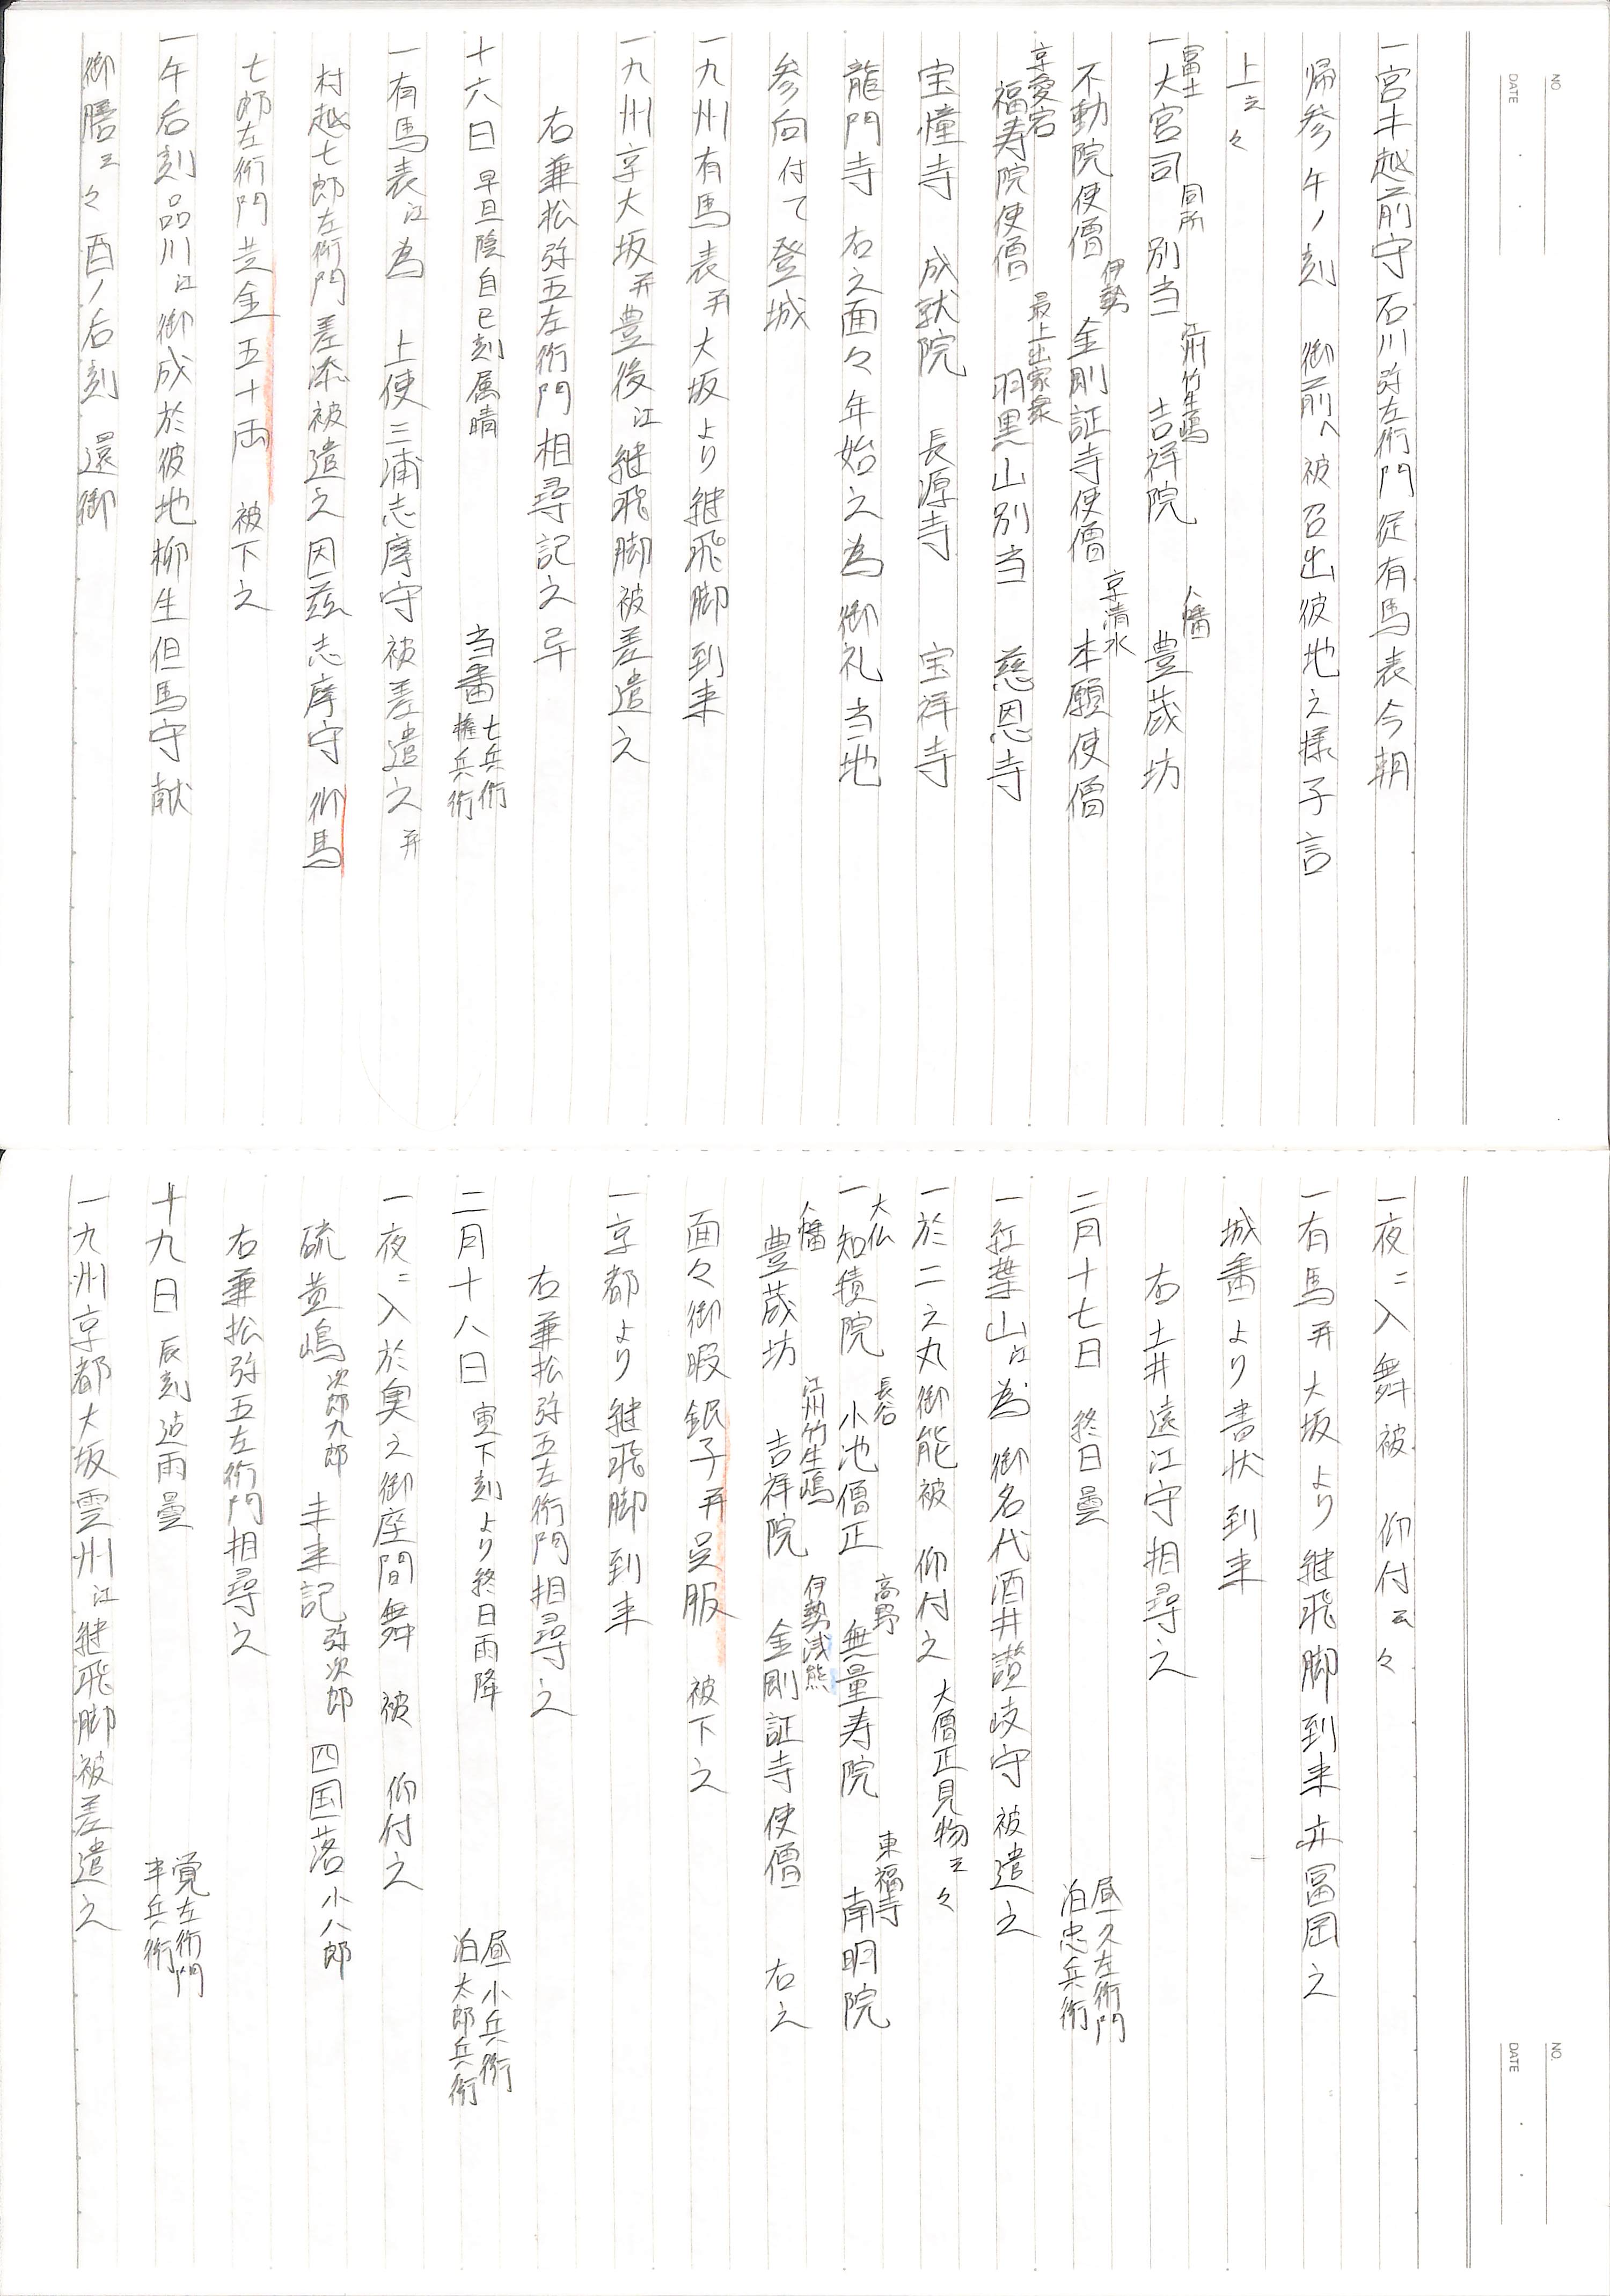 NO.
DATE
一宮木越前守石川弥左衛門従有馬表今朝
帰参午ノ刻 御前へ被召出彼地之様子言
上云々
一富士大宮司 同所別当 江州竹生嶋吉祥院 八幡豊蔵坊
不動院使僧 伊勢金剛証寺使僧 京清水本願使僧
京愛宕福寿院使僧 最上出家衆羽黒山別当 慈恩寺
宝憧寺 成就院 長源寺 宝祥寺
龍門寺 右之面々年始之為御礼当地
参向付て登城
一九州有馬表并大坂より継飛脚到来
一九州京大坂并豊後江継飛脚被差遣之
右兼松弥五左衛門相尋記之畢
十六日 早旦陰自巳刻属晴 当番 七兵衛 権兵衛
一有馬表江為 上使三浦志摩守被差遣之并
村越七郎左衛門差添被遣之因茲志摩守 御馬
七郎左衛門黄金五十両 被下之
一午后刻品川江御成於彼地柳生但馬守献
御膳云々酉ノ后刻 還御
NO.
DATE
一夜ニ入舞被 仰付云々
一有馬并大坂より継飛脚到来并冨岡之
城番より書状到来
右土井遠江守相尋之
二月十七日 終日曇 昼久左衛門 泊忠兵衛
一紅葉山江為 御名代酒井讃岐守被遣之
一於二之丸御能被 仰付之 大僧正見物云々
一大仏知積院 長谷小池僧正 高野無量寿院 東福寺南明院
八幡豊蔵坊 江州竹生嶋吉祥院 伊勢浅熊金剛証寺使僧 右之
面々御暇銀子并呉服 被下之
一京都より継飛脚到来
右兼松弥五左衛門相尋之
二月十八日 寅下刻より終日雨降 昼小兵衛 泊太郎兵衛
一夜ニ入於奥之御座間舞 被 仰付之
硫黄嶋次郎九郎 未来記弥次郎 四国落小八郎
右兼松弥五左衛門相尋之
十九日 辰刻迠雨曇 覚左衛門 半兵衛
一九州京都大坂雲州江継飛脚被差遣之